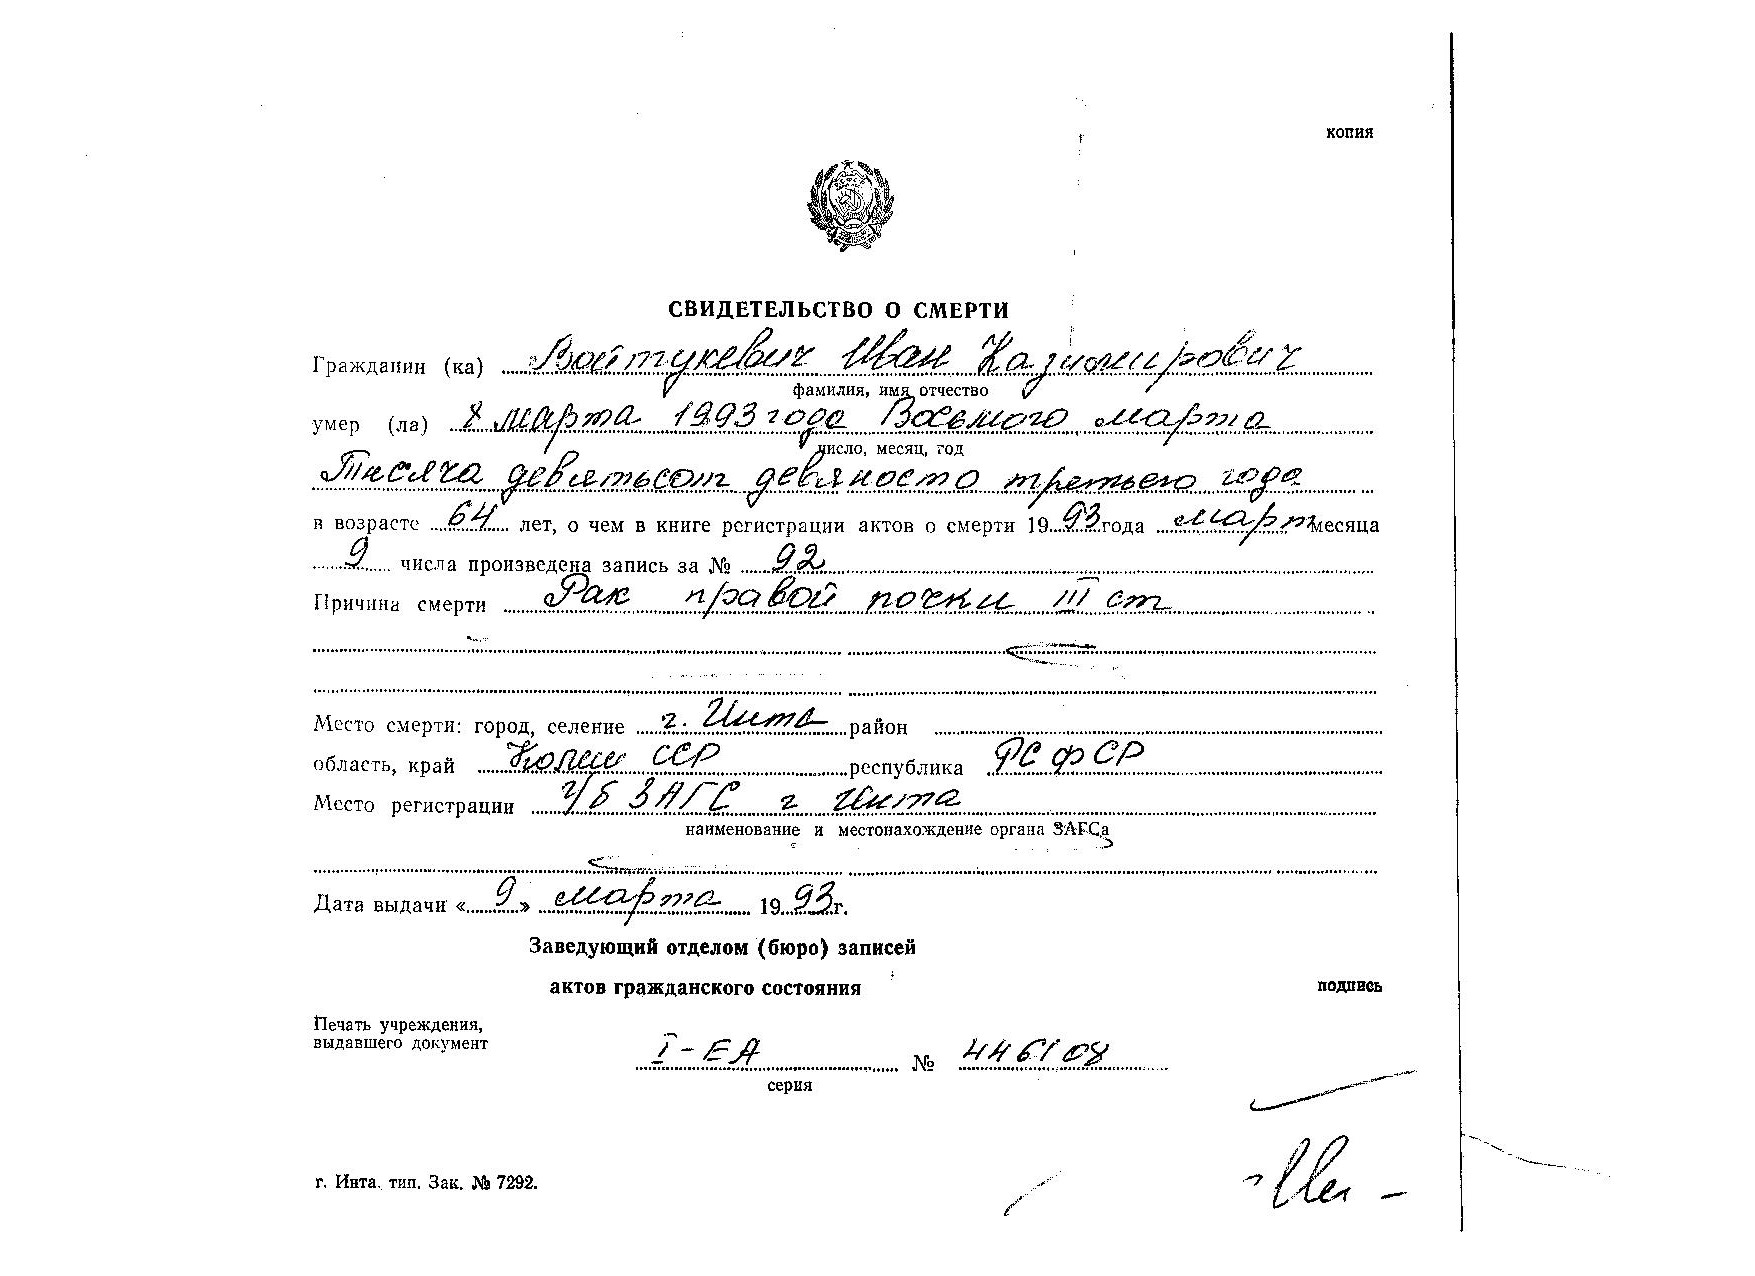 копия
СВИДЕТЕЛЬСТВО О СМЕРТИ
Гражданин (ка) Войтукевич Иван Казимирович
фамилия, имя, отчество
умер (ла) 8 марта 1993 года Восьмого марта
число, месяц, год
Тысяча девятьсот девяносто третьего года
в возрасте 64 лет, о чем в книге регистрации актов о смерти 1993 года март месяца
9 числа произведена запись за № 92
Причина смерти Рак правой почки III ст
Место смерти: город, селение г. Инта район
область, край Коми ССР республика РСФСР
Место регистрации Г/б ЗАГС г Инта
наименование и местонахождение органа ЗАГСа
Дата выдачи « 9 » марта 1993 г.
Заведующий отделом (бюро) записей
актов гражданского состояния
подпись
Печать учреждения,
выдавшего документ
I-ЕА № 446108
серия
г. Инта. тип. Зак. № 7292.